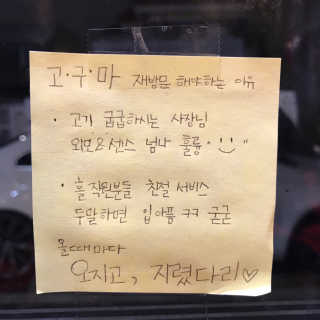 고·구·마 재방문 해야하는 이유
· 고기 굽굽하시는 사장님
외모&센스 넘나 훌륭·◡̈··"
· 홀직원분들 친절 서비스
두말하면 입아픔 ㅋㅋ 굳굳
올때마다
오지고, 지렸다리♡